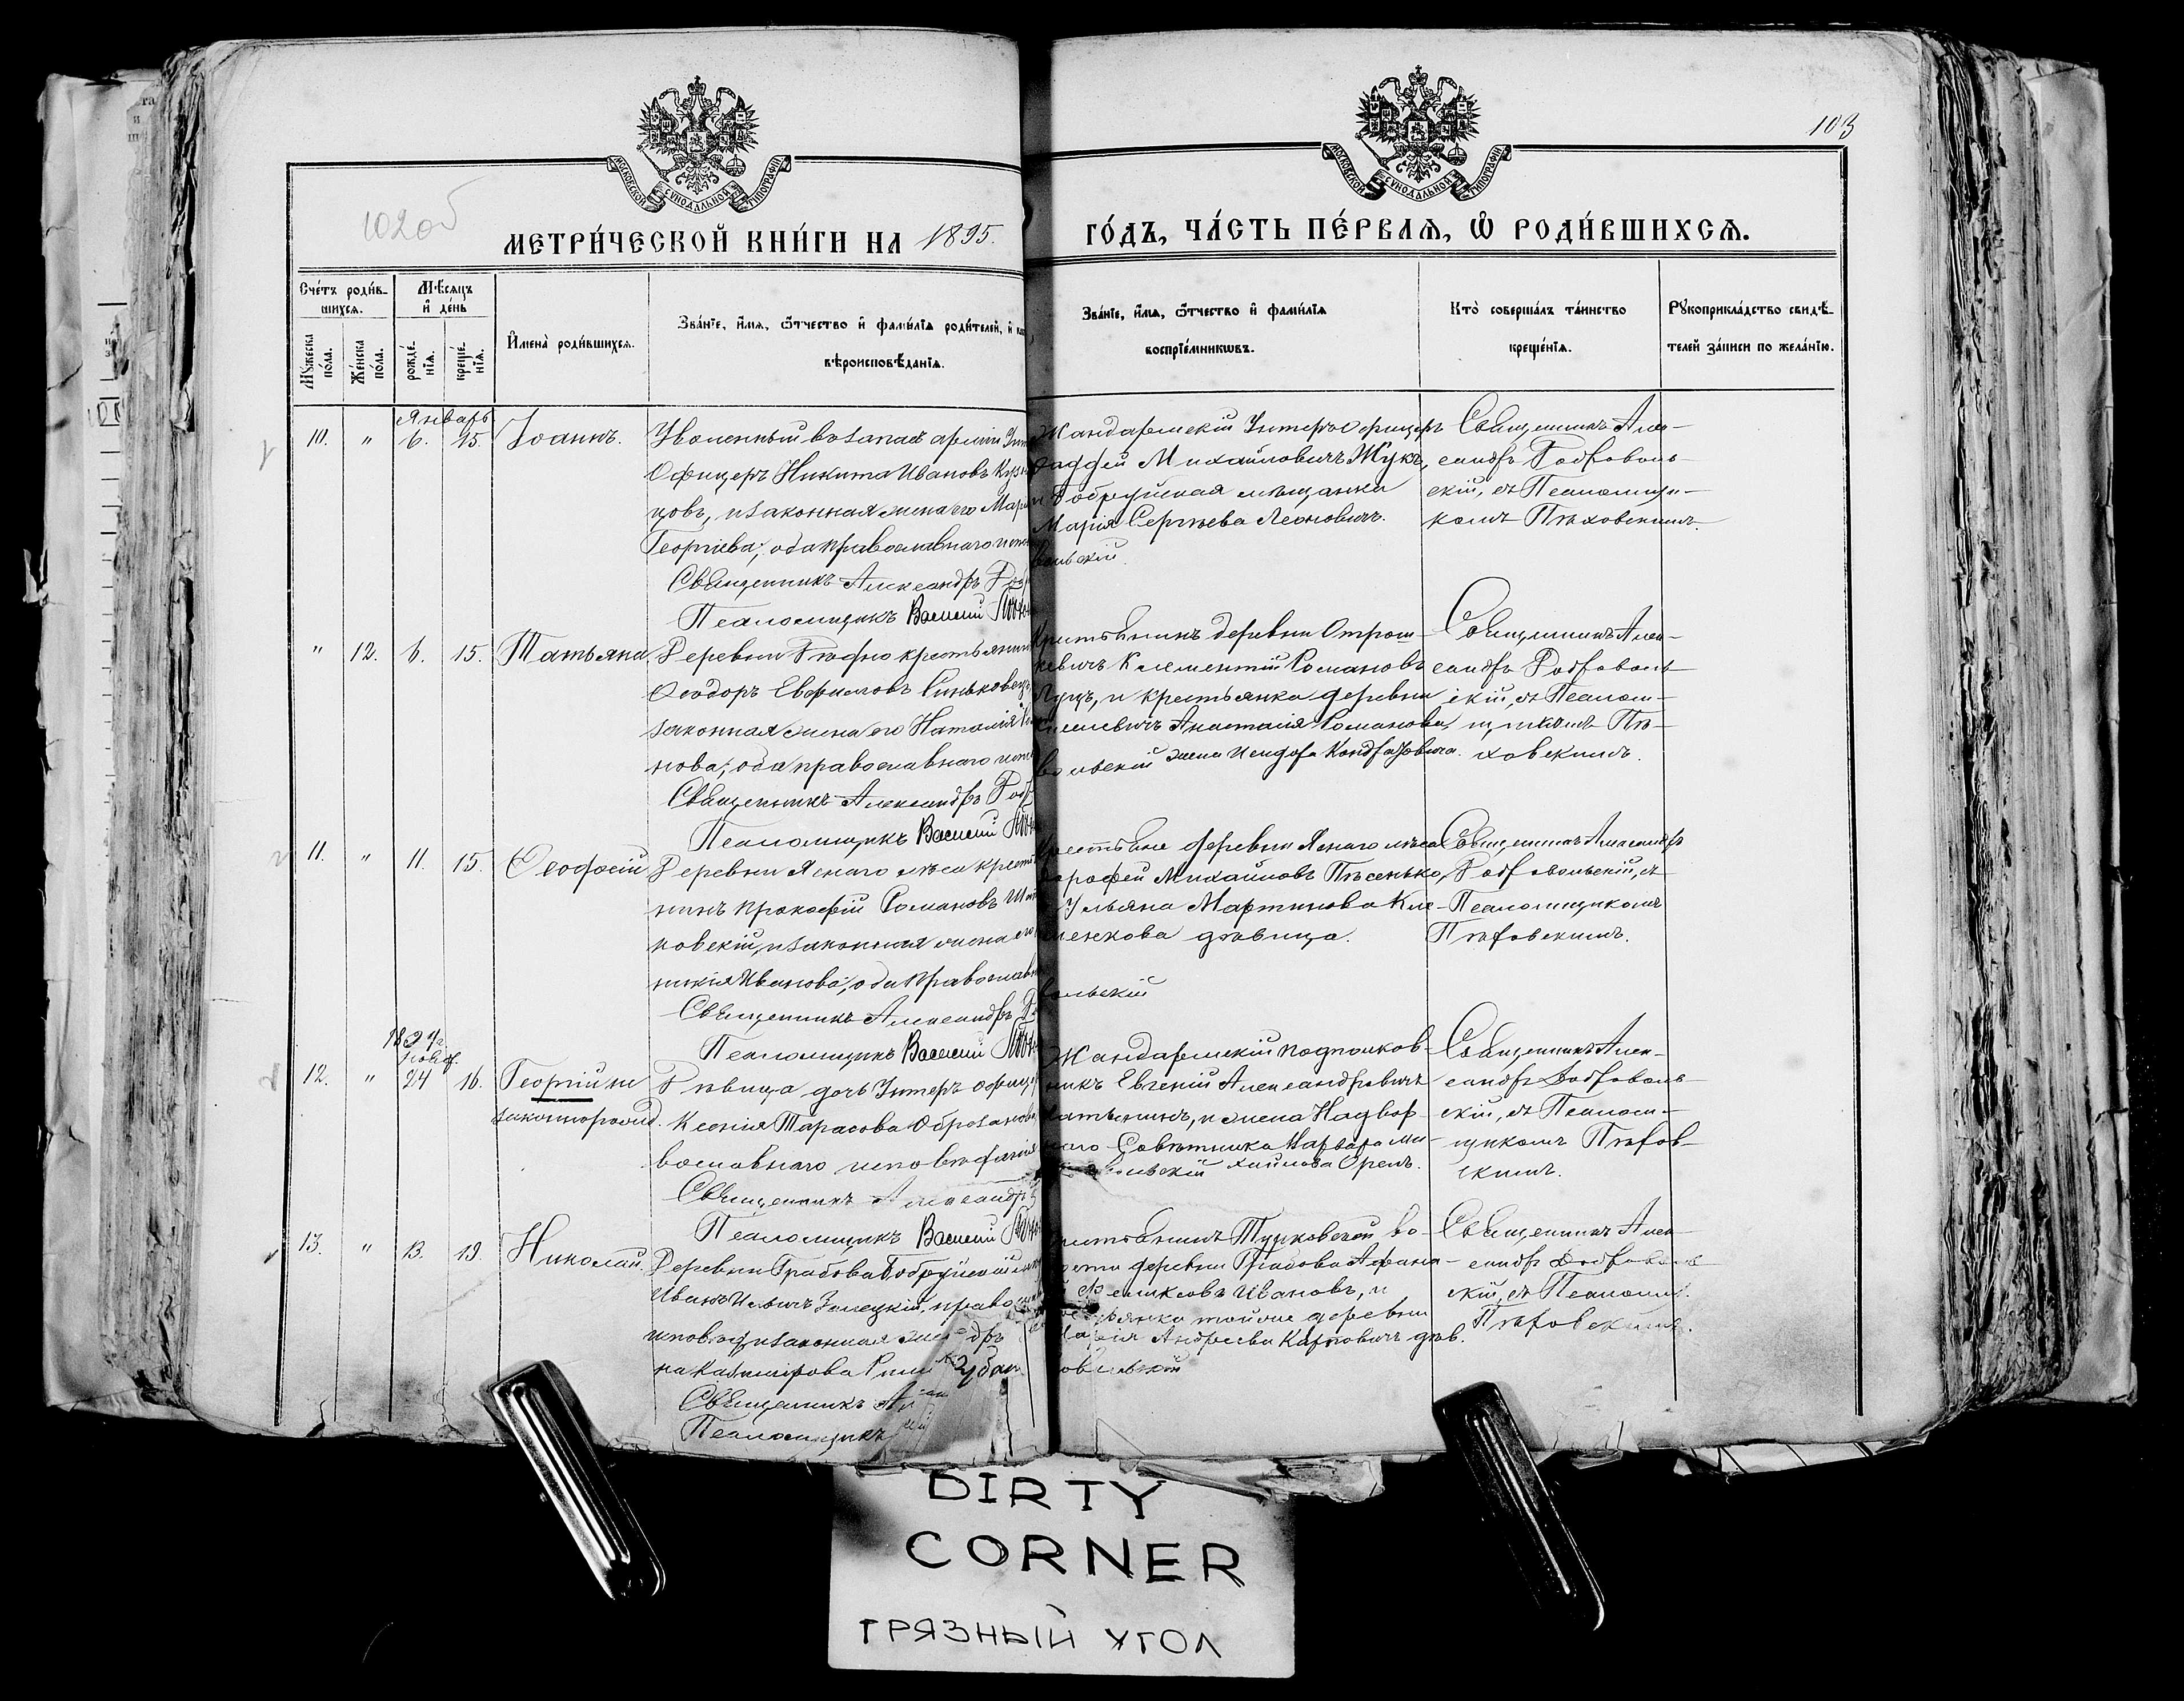 103
102об
МОСКОВСКОЙ СУНОДАЛЬНОЙ ТИПОГРАФІИ
МОСКОВСКОЙ СУНОДАЛЬНОЙ ТИПОГРАФІИ
МЕТРИ́ЧЕСКОЙ КНИ́ГИ НА 1895.
ГО́ДЪ, ЧА́СТЬ ПЕ́РВАѦ, Ѡ РОДИ́ВШИХСѦ.
Сче́тъ роди́в-
шихсѧ.
Мꙋжеска по́ла.
Же́нска по́ла.
Мѣсѧцъ
и де́нь
рожде́-
нїѧ.
креще́-
нїѧ.
Имена̀ роди́вшихсѧ.
Зва́нїе, и́мѧ, ѻ́тчество и фами́лїѧ роди́телей, и
вѣроисповѣ́данїѧ.
Зва́нїе, и́мѧ, ѻ́тчество и фами́лїѧ
воспрїе́мникѡвъ.
Кто̀ соверша́лъ та́инство
креще́нїѧ.
Рꙋкоприкла́дство свидѣ́-
телей за́писи по жела́нїю.
Январь
10. " 6. 15. Іоаннъ.
Уволенный въ запасъ арміи Ун
Офицеръ Никита Ивановъ Куз
цовъ, и законная жена его Мар
Георгіева; оба православнаго
Священникъ Александръ
Псаломщикъ Василій
Жандармскій Унтеръ офицеръ
Фаддей Михайловичъ Жукъ,
и Бобруйская мѣщанка
Марія Сергѣева Леоновичъ.
вольскій.
Священникъ Алек-
сандръ Доброволь-
скій, съ Псаломщи-
комъ Пѣховскимъ.
" 12. 6. 15. Татьяна.
Деревни крестьянин
Ѳеодоръ Синьковец
законная жена его Наталія
нова; оба православнаго
Священникъ Александръ Доб
Псаломщикъ Василій
крестьянинъ деревни Отрош-
кевичъ Климентій Романовъ
Луцъ, и крестьянка деревни
Анастасія Романова,
вольскій жена Исидора Кондратовича.
Священникъ Алек-
сандръ Доброволь-
скій, съ Псалом-
щикомъ Пѣ-
ховскимъ.
11. " 11. 15. Ѳеодосій
Деревни Яснаго лѣса крест
нинъ Прокофій Романовъ
ковскій, и законная жена его
Иванова; оба Православн
Священникъ Александръ
Псаломщикъ Василій
крестьяне деревни Яснаго лѣса
Дорофей Михайловъ Пѣсенько,
Ульяна Мартинова Кли-
менкова дѣвица.
вольскій
Священникъ Александръ
Добровольскій, съ
Псаломщикомъ
Пѣховскимъ.
1894г.
Нояб.
12. " 24 16. Георгій не
законнорожд.
Дѣвица дочь Унтеръ офице
Ксенія Тарасова
вославнаго исповѣданія
Священникъ Александръ
Псаломщикъ Василій
Жандармскій подполков-
никъ Евгеній Александровичъ
и жена Надвор-
наго Совѣтника Варвара Ми-
хайлова Оремъ.
вольскій
Священникъ Алек-
сандръ Доброволь-
скій, съ Псалом-
щикомъ Пѣхов-
скимъ.
13. " 13. 19. Николай.
Деревни Грабова Бобруйскій
Иванъ Залецкій, право
исповѣд. и законная же
на Казимірова
Священникъ
Псаломщикъ
крестьянинъ Турковской во-
лости деревни Грабова Афана-
Феликсовъ Ивановъ, и
крестьянка тойже деревни
Марія Андреева Карповичъ дѣв.
овольскій
Священникъ Алек-
сандръ Доброволь
скій, съ Псаломщ.
Пѣховскимъ.
DIRTY
CORNER
ГРЯЗНЫЙ УГОЛ